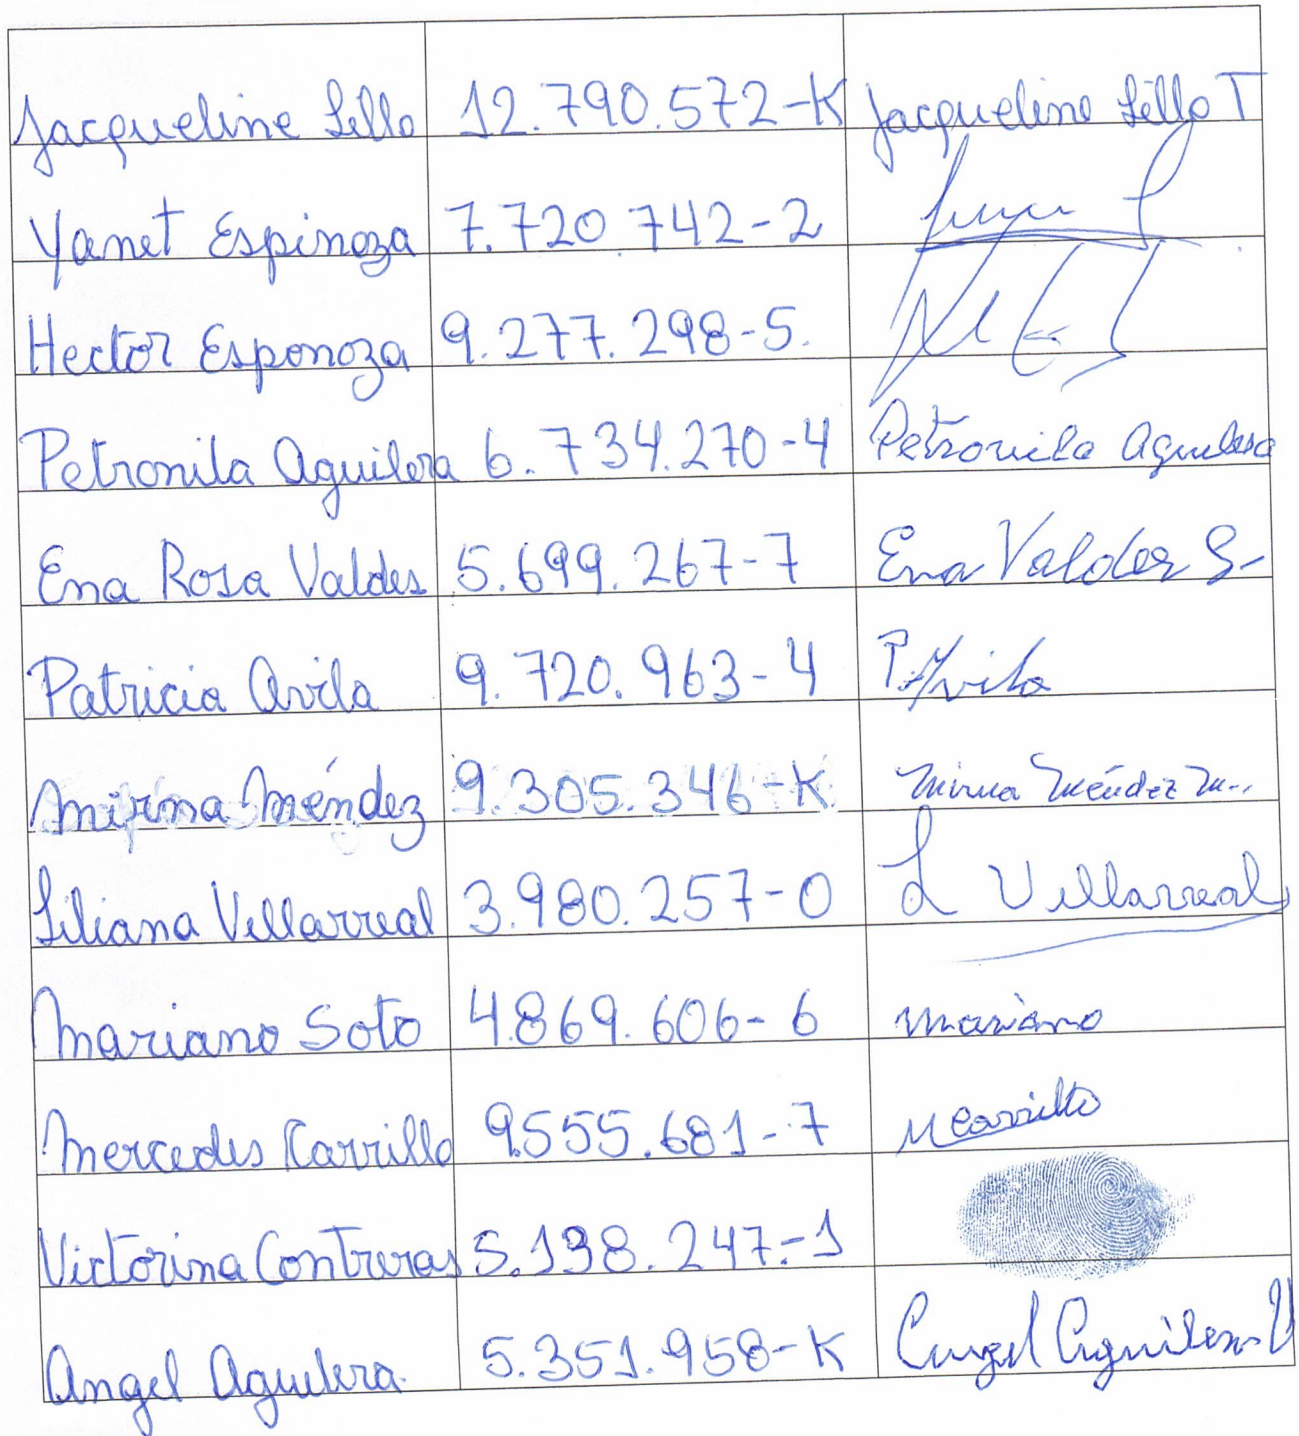 Jacqueline Lillo 12.790.572-K Jacqueline Lillo T
Yanet Espinoza 7.720.742-2
Hector Esponoza 9.277.298-5.
Petronila Aguilera 6.734.270-4 Petronila Aguilera
Ena Rosa Valdes 5.699.267-7 Ena Valdes S-
Patricia Avila 9.720.963-4 P. Avila
Mirna Méndez 9.305.346-K Mirna Méndez M..
Liliana Villarreal 3.980.257-0 L Villarreal
Mariano Soto 4.869.606-6 Mariano
Mercedes Carrillo 9555.681-7 M Carrillo
Victorina Contreras 5.198.247-1
Angel Aguilera 5.351.958-K Angel Aguilera V